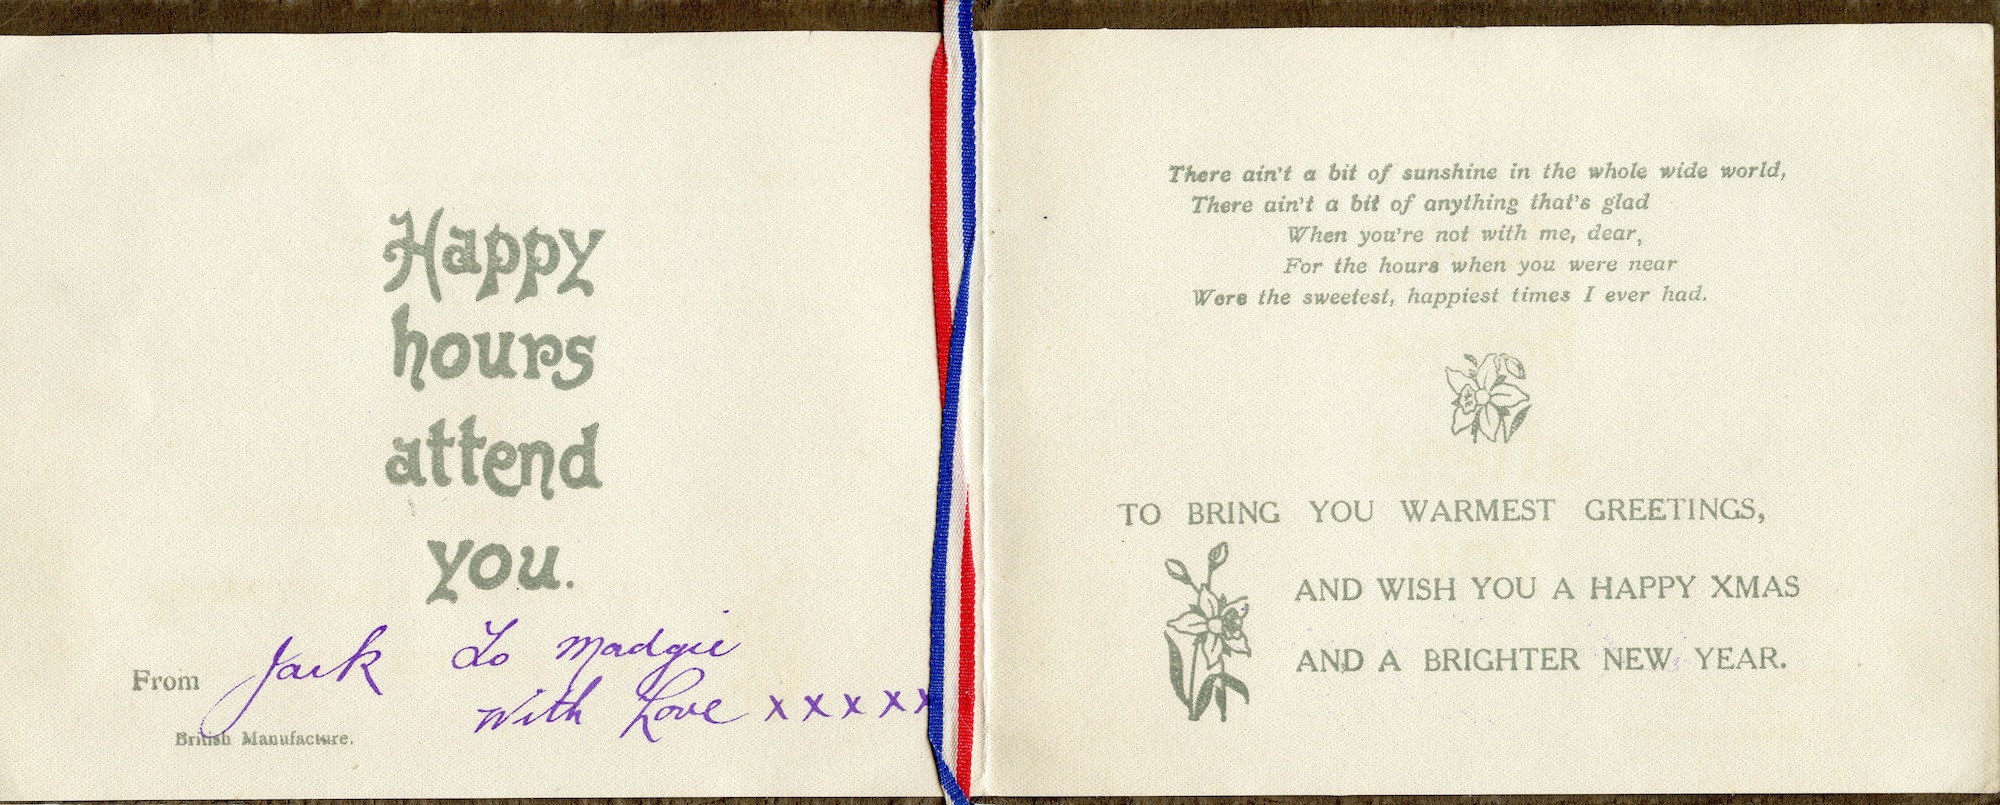 Happy
hours
attend
you.
From Jack To Madgie
With Love x x x x x
British Manufacture.
There ain't a bit of sunshine in the whole wide world,
There ain't a bit of anything that's glad
When you're not with me, dear,
For the hours when you were near
Were the sweetest, happiest times I ever had.
TO BRING YOU WARMEST GREETINGS,
AND WISH YOU A HAPPY XMAS
AND A BRIGHTER NEW YEAR.